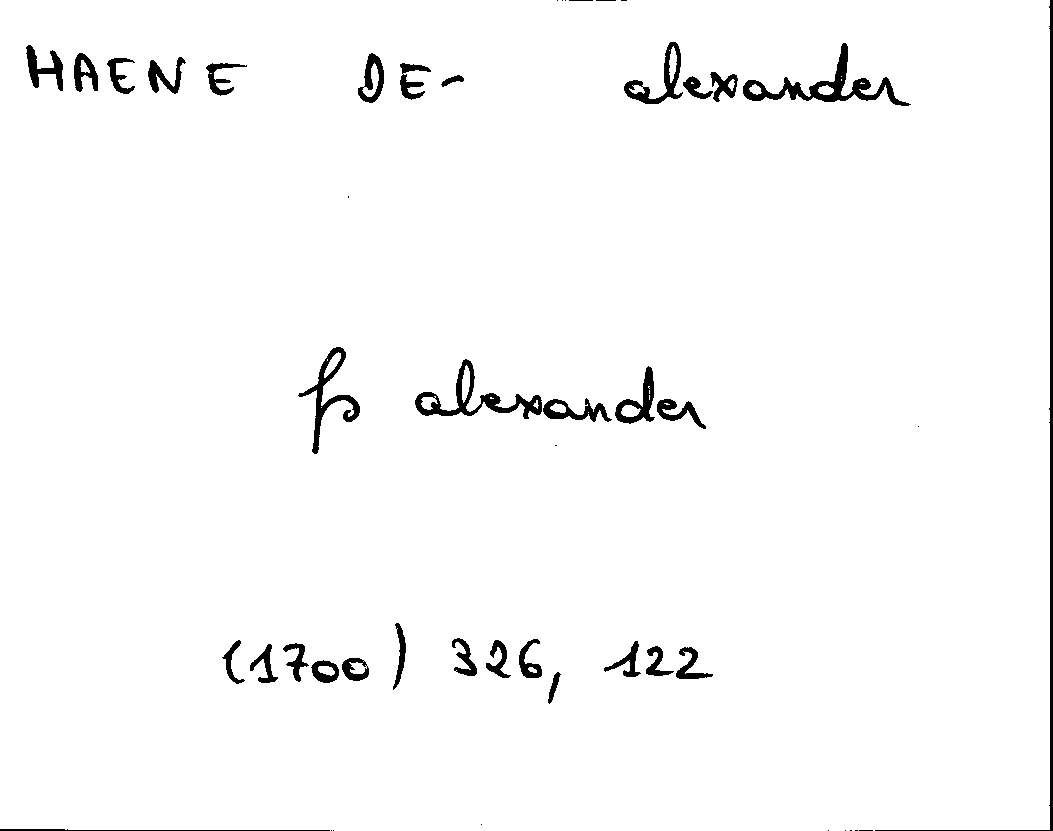 HAENE DE- alexander
fs alexander
(1700) 326, 122